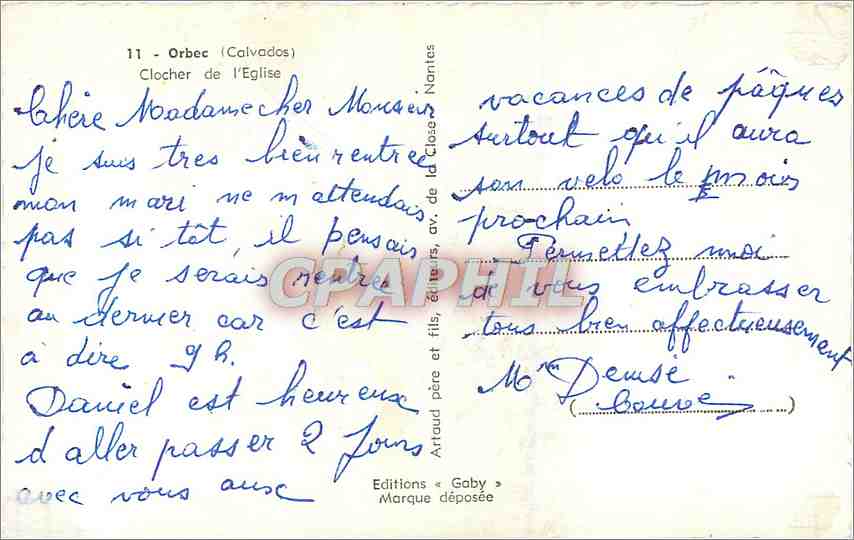 11 - Orbec (Calvados)
Clocher de l'Eglise
Chère Madame cher Monsieur
je suis tres bien rentrée
mon mari ne m attendais
pas si tôt, il pensais
que je serais rentre
au dernier car c'est
à dire 9 h.
Daniel est heureux
d aller passer 2 Jours
avec vous aux
vacances de pâques
surtout qu'il aura
son velo le mois
prochain
Permettez moi
de vous embrasser
tous bien affectueusement
Mme Denise
Artaud père et fils, éditeurs, av. de la Close - Nantes
Editions « Gaby »
Marque déposée
CPAPHIL